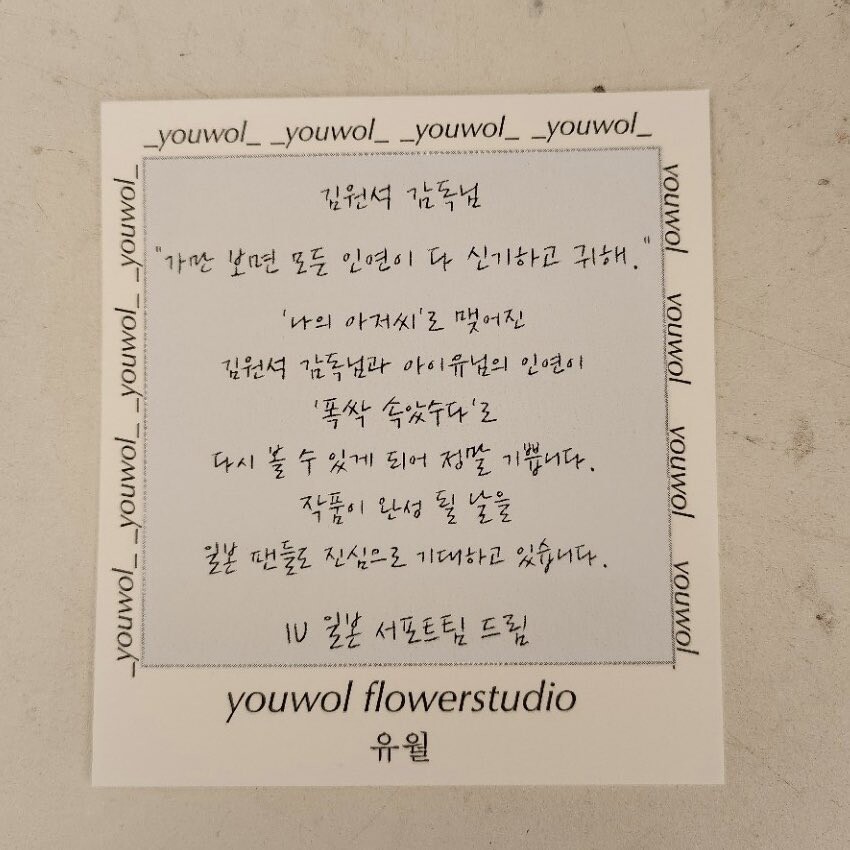 _youwol_ _youwol_ _youwol_ _youwol_
_youwol_ _youwol_ _youwol_ _youwol_
김원석 감독님
"가만 보면 모든 인연이 다 신기하고 귀해."
'나의 아저씨'로 맺어진
김원석 감독님과 아이유님의 인연이
'폭싹 속았수다'로
다시 볼 수 있게 되어 정말 기쁩니다.
작품이 완성 될 날을
일본 팬들도 진심으로 기대하고 있습니다.
IU 일본 서포트팀 드림
youwol youwol youwol youwol
youwol flowerstudio
유월